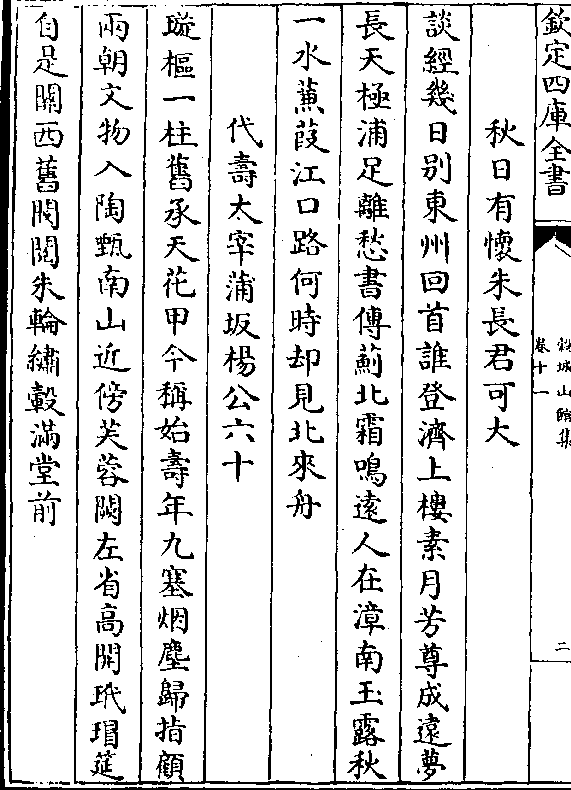 欽定四庫全書
穀城山館集
卷十一
二
秋日有懷朱長君可大
談經幾日別東州回首誰登濟上樓素月芳尊成遠夢
長天極浦足離愁書傳薊北霜鳴遠人在漳南玉露秋
一水蒹葭江口路何時却見北來舟
代壽太宰蒲坂楊公六十
璇樞一柱舊承天花甲今稱始壽年九塞烟塵歸指顧
兩朝文物入陶甄南山近傍芙蓉闕左省高開玳瑁筵
自是關西舊閥閱朱輪繡轂滿堂前